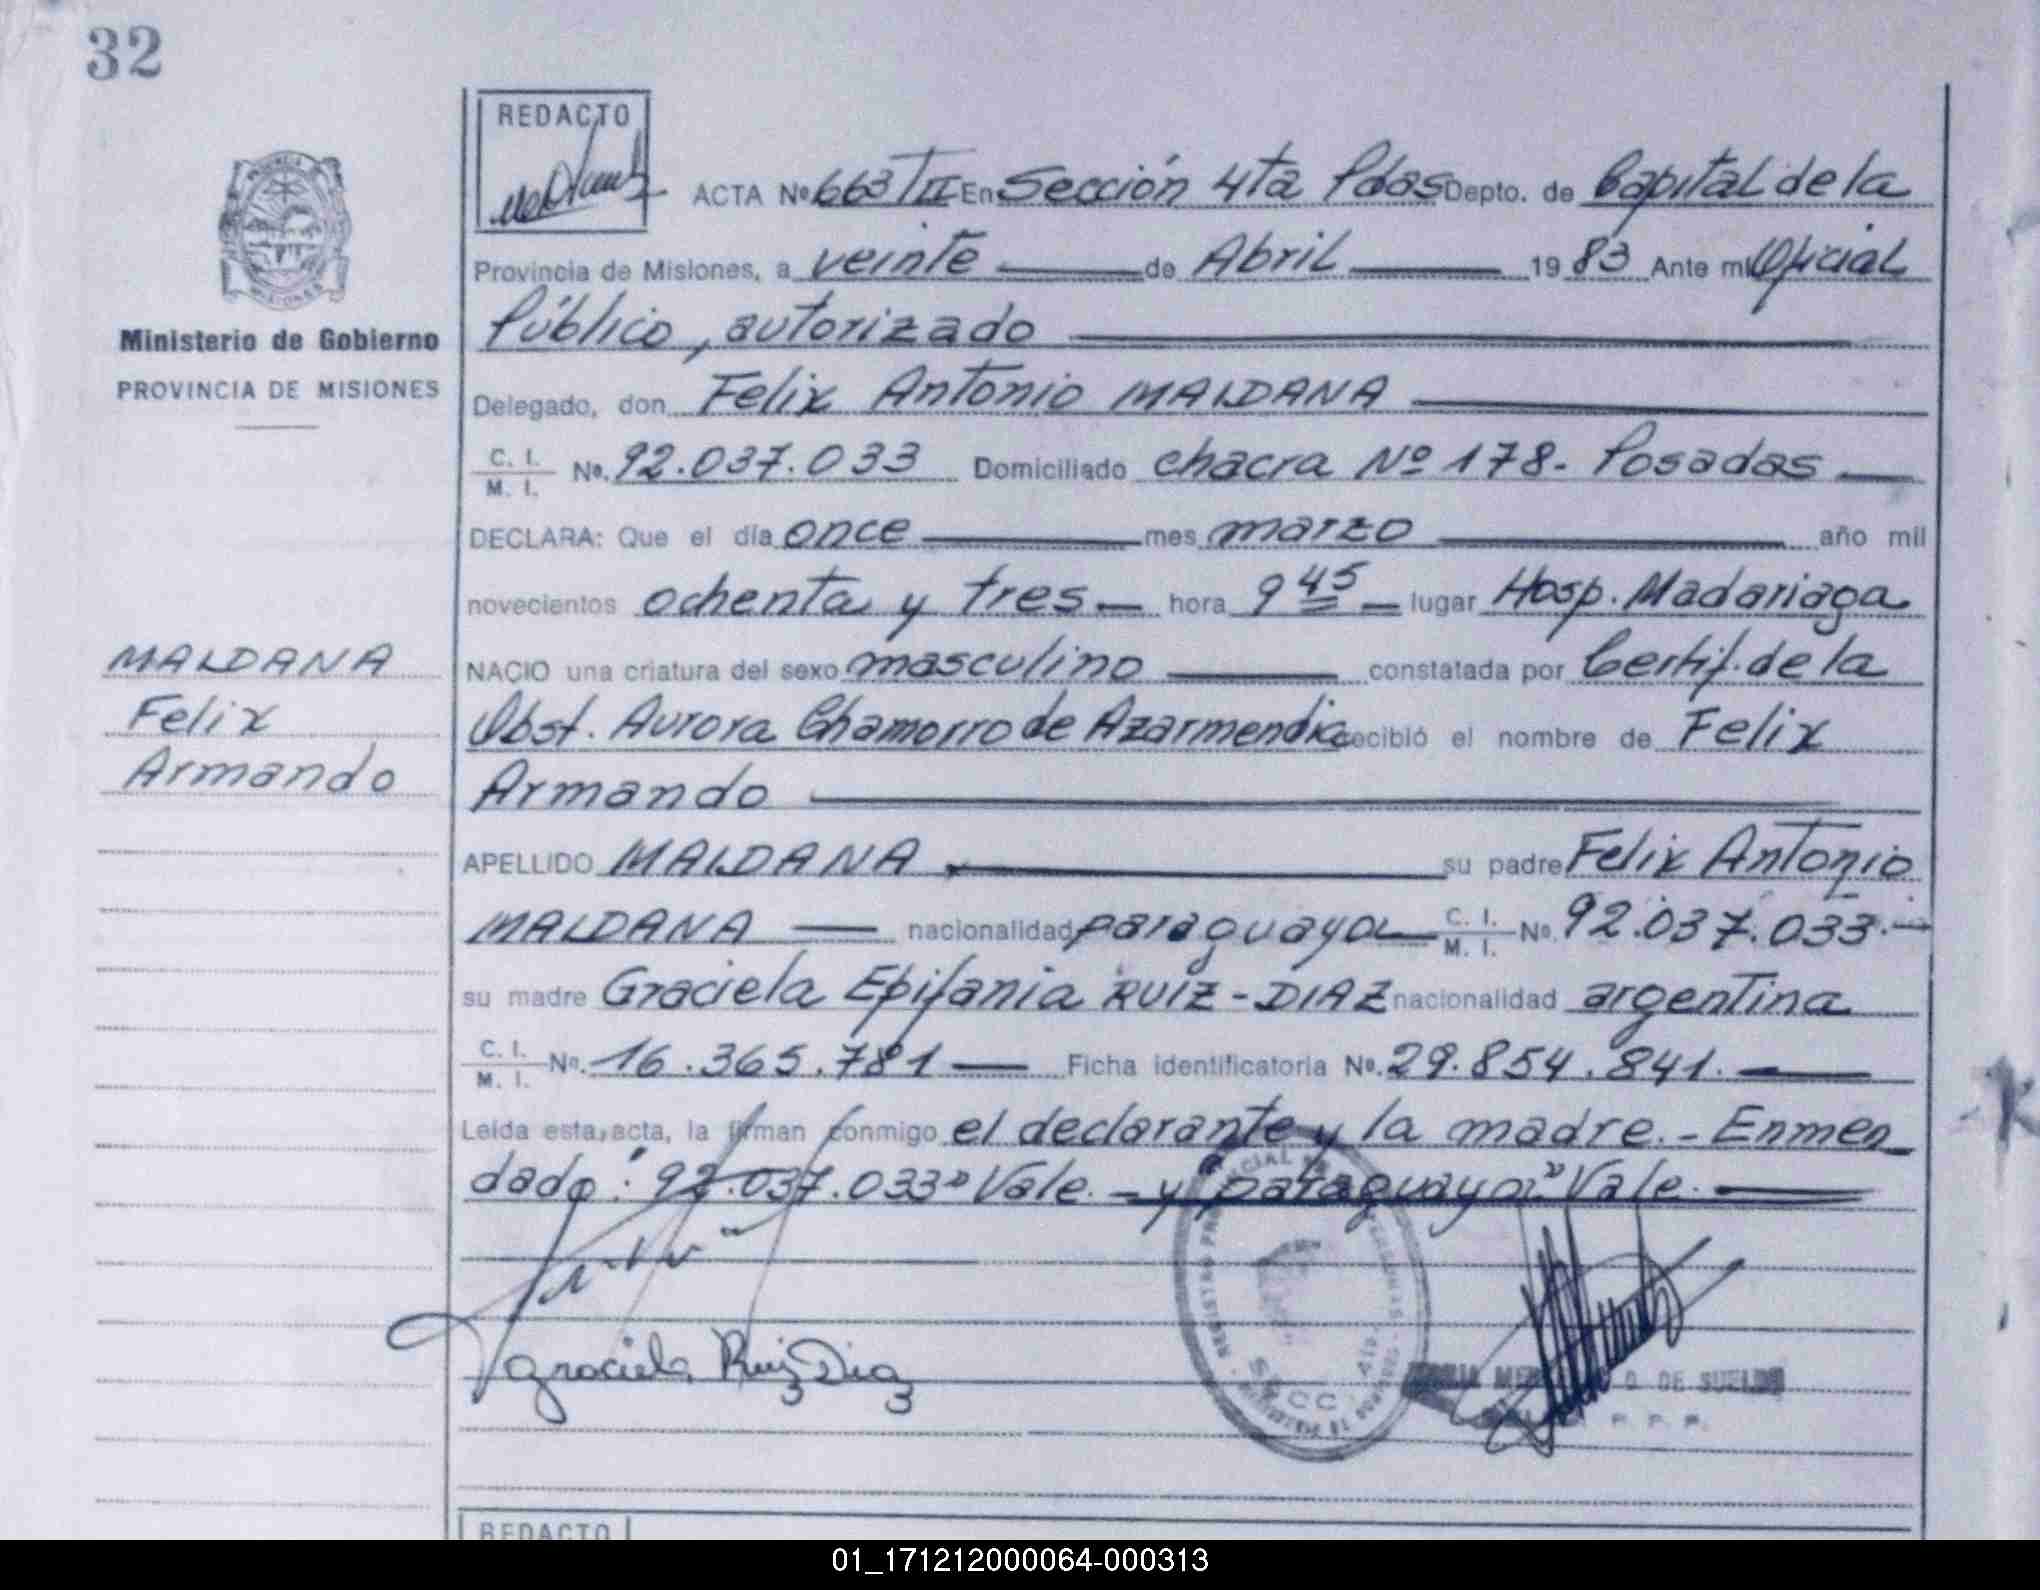 32
REDACTO
ACTA Nº 663/II En Sección 4ta Pdas Depto. de Capital de la
Provincia de Misiones, a veinte de Abril 1983 Ante mi Oficial
Público, autorizado
Ministerio de Gobierno
PROVINCIA DE MISIONES
Delegado, don Felix Antonio MALDANA
C. I. / M. I. Nº. 92.037.033 Domiciliado chacra Nº 178- Posadas
DECLARA: Que el día once mes marzo año mil
novecientos ochenta y tres hora 9 45 lugar Hosp. Madariaga
NACIO una criatura del sexo masculino constatada por Certif. de la
Obst. Aurora Chamorro de Azarmendia recibió el nombre de Felix
Armando
MALDANA
Felix
Armando
APELLIDO MALDANA su padre Felix Antonio
MALDANA nacionalidad paraguaya C. I. / M. I. Nº. 92.037.033.-
su madre Graciela Epifania RUIZ-DIAZ nacionalidad argentina
C. I. / M. I. Nº. 16.365.781 Ficha identificatoria Nº. 29.854.841.
Leida esta acta, la firman conmigo el declarante y la madre.- Enmen
dado: 92.037.033" Vale.- y "paraguaya" Vale.
Graciela Ruiz Diaz
DE SUELDO
P. P. P.
REDACTO
01_171212000064-000313